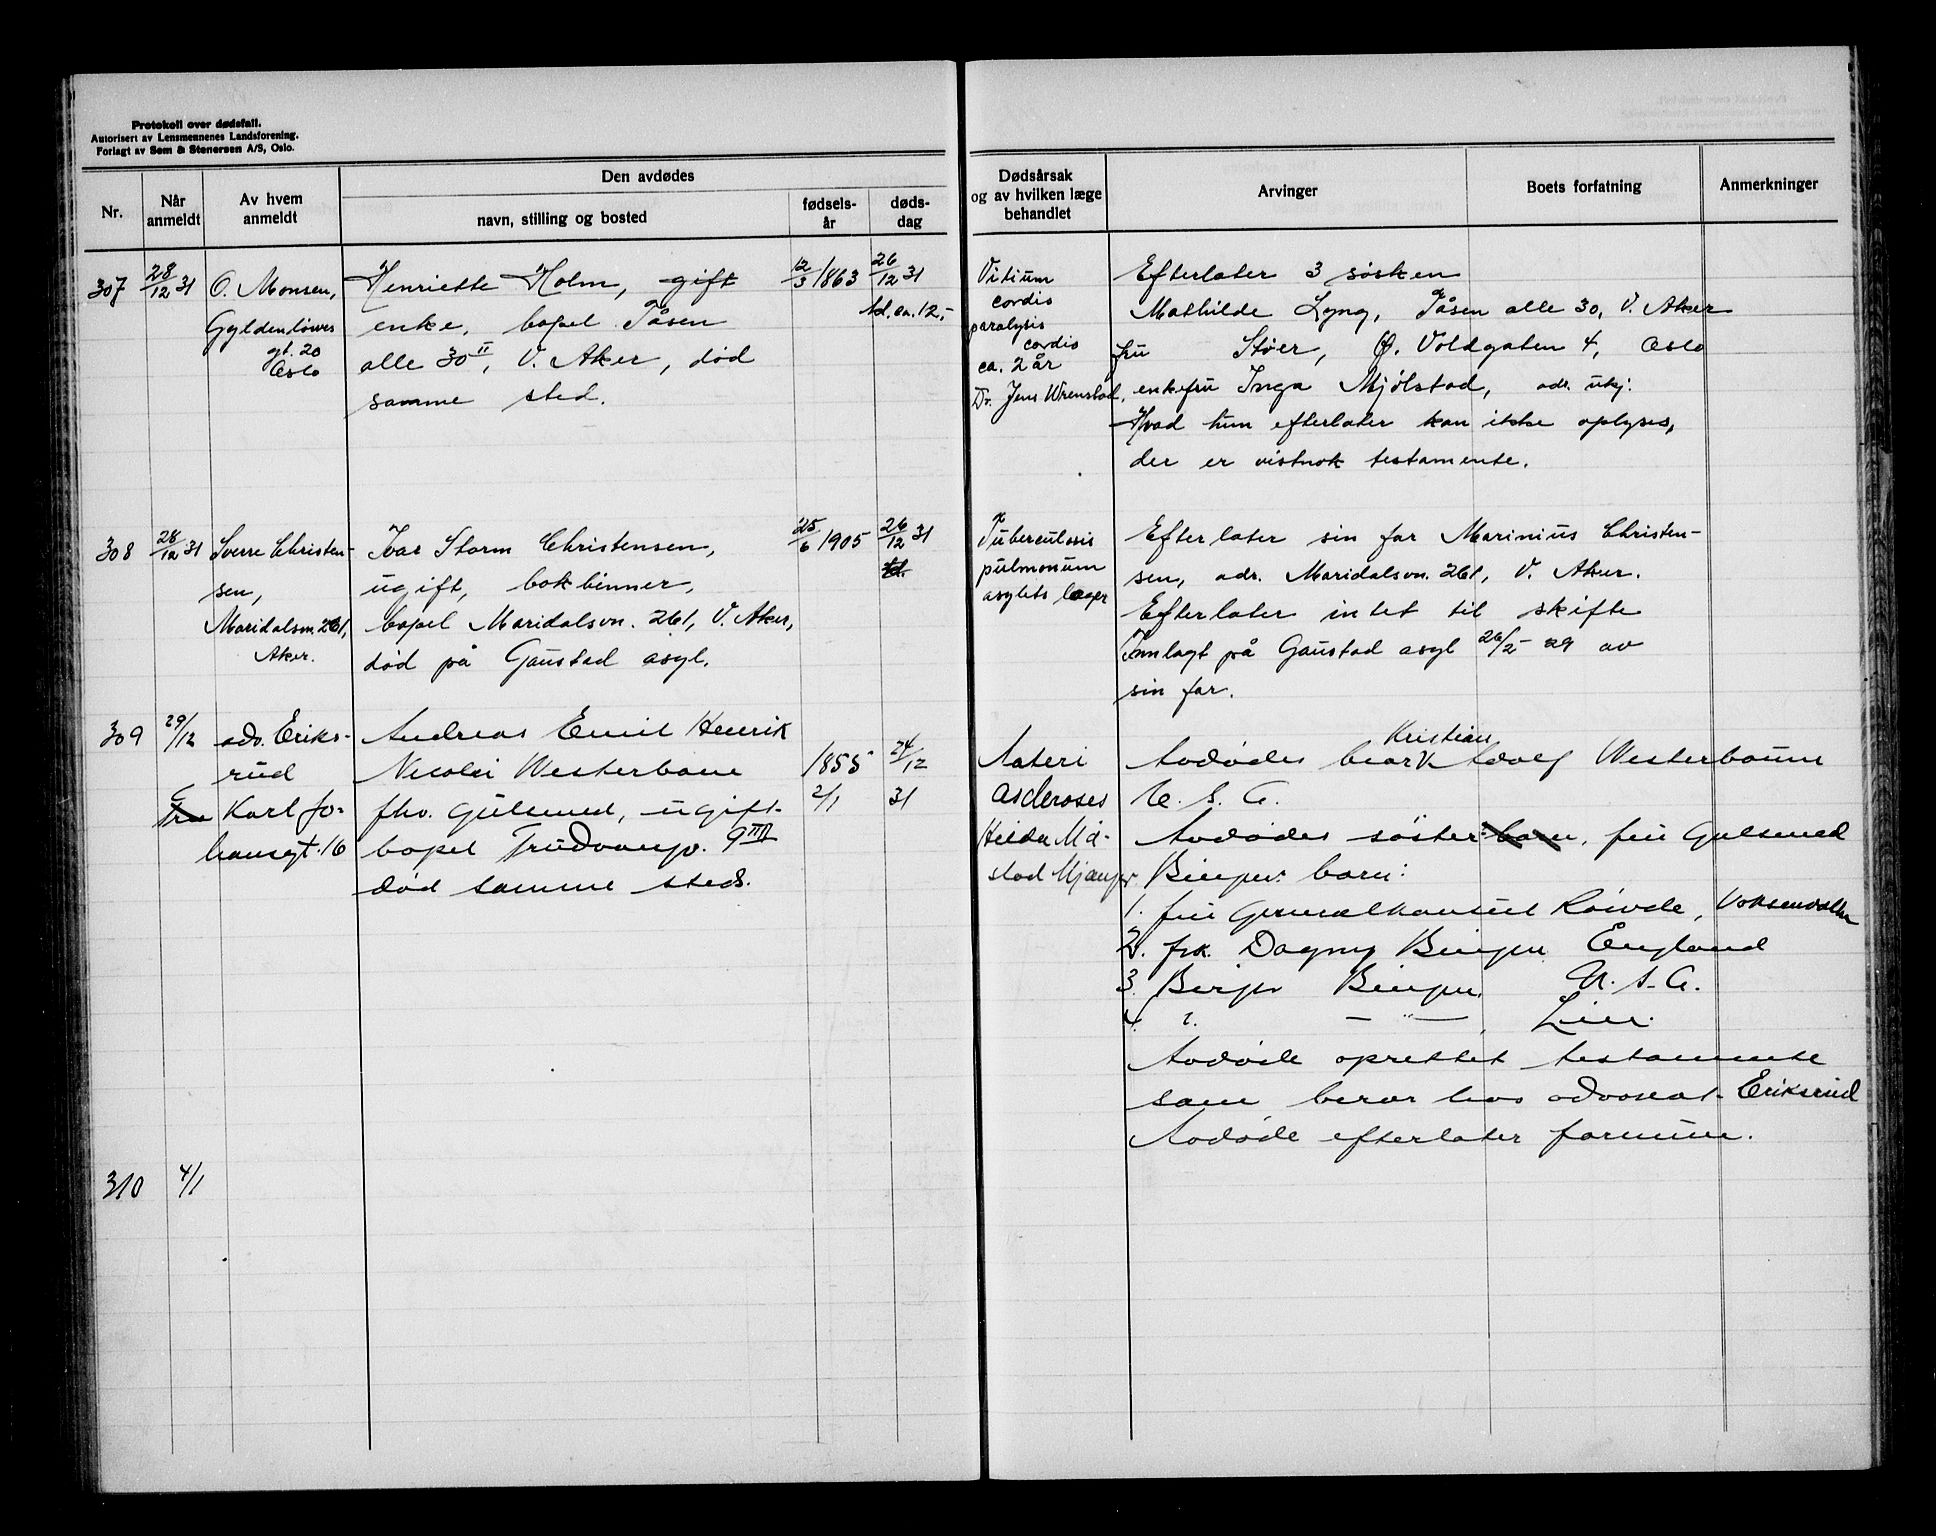 Protokoll over dødsfall.
Autorisert av Lensmennenes Landsforening.
Forlagt av Sem & Stenersen A/S, Oslo.
Nr.
Når anmeldt
Av hvem anmeldt
Den avdødes
navn, stilling og bosted
fødsels-år
døds-dag
Dødsårsak og av hvilken læge behandlet
Arvinger
Boets forfatning
Anmerkninger
307
28/12 31
O. Monsen,
Gyldenløves
gt. 20
Oslo
Henriette Holm, gift
enke, bopel Tåsen
alle 30 II, V. Aker, død
samme sted.
12/3 1863
26/12 31
kl. ca. 12,-
Vitium
cordis
paralysis
cordis
ca. 2 år
Dr. Jens Wrenstad,
Efterlater 3 søsken
Mathilde Lyng, Tåsen alle 30, V. Aker
fru Støer, Ø. Voldgaten 4, Oslo
enkefru Inga Mjølstad, adr. ukj.
Hvad hun efterlater kan ikke oplyses,
der er vistnok testamente.
308
28/12 31
Sverre Christen-
sen,
Maridalsvn. 261,
Aker.
Ivar Storm Christensen,
ugift, bokbinner,
bopel Maridalsvn. 261, V. Aker,
død på Gaustad asyl.
25/6 1905
26/12 31
kl.
Tuberculosis
pulmonum
asylets læger
Efterlater sin far Marinius Christen-
sen, adr. Maridalsvn. 261, V. Aker.
Efterlater intet til skifte
Innlagt på Gaustad asyl 26/2 - 29 av
sin far.
309
29/12
adv. Eriks-
rud
Karl Jo-
hansgt. 16
Andreas Emil Henrik
Nicolai Westerboue
fhv. Gulsmed, ugift
bopel Trudvangv. 9 III
død samme sted.
1855
2/1
24/12
31
Arteri
Hilda
Avdødes bror Kristian Adolf Westerboum
U. S. A.
Avdødes søster barn, fru Gulsmed
Bingers barn:
1. fru Generalkonsul
2. frk. Dagny Binger England
3. Birger Binger, U. S. A.
4. ?. — " — , Lier.
Avdøde oprettet testamente
som beror hos advokat Eriksrud
Avdøde efterlater formue.
310
4/1